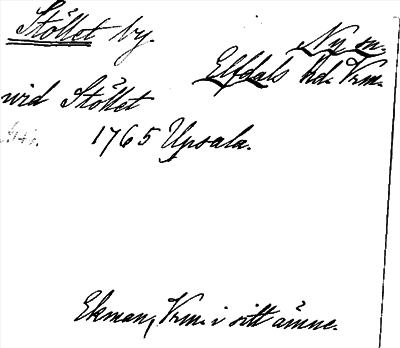 Stöllet by.
Ny sn.
Elfdals hd. Vrm.
vid Stöllet
1765 Upsala.
Ekman, Vrm. i sitt ämne.